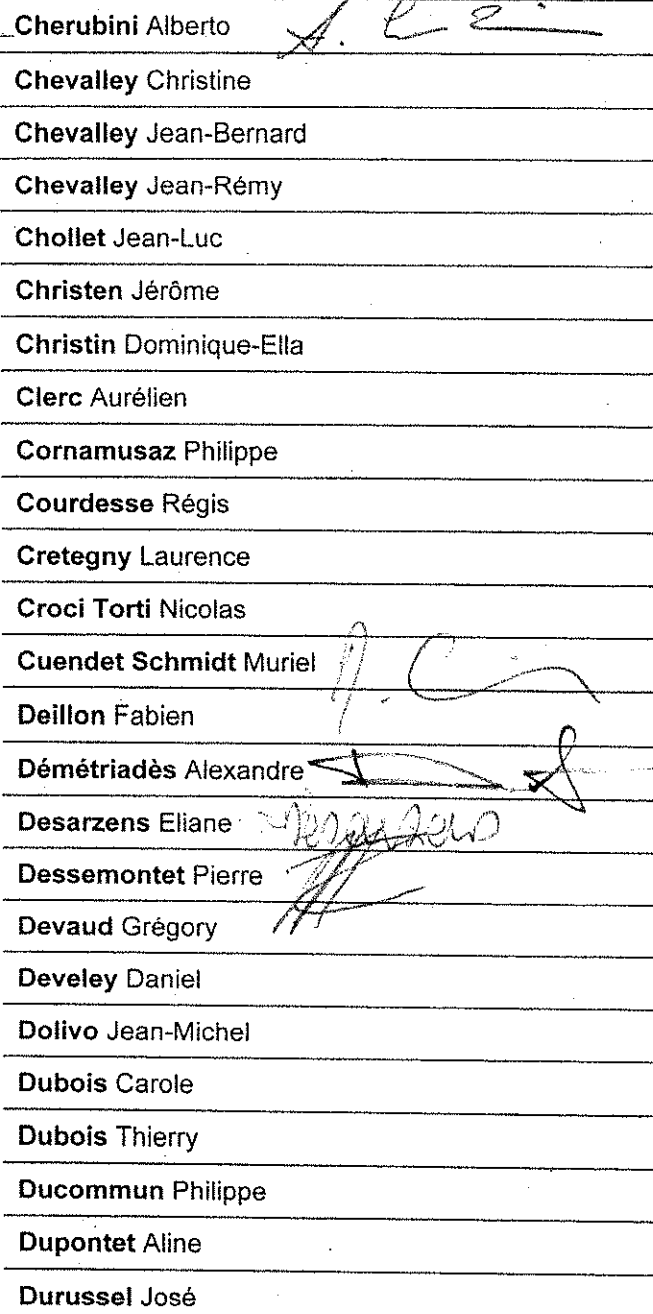 Cherubini Alberto
Chevalley Christine
Chevalley Jean-Bernard
Chevalley Jean-Rémy
Chollet Jean-Luc
Christen Jérôme
Christin Dominique-Ella
Clerc Aurélien
Cornamusaz Philippe
Courdesse Régis
Cretegny Laurence
Croci Torti Nicolas
Cuendet Schmidt Muriel
Deillon Fabien
Démétriadès Alexandre
Desarzens Eliane Desarzens
Dessemontet Pierre
Devaud Grégory
Develey Daniel
Dolivo Jean-Michel
Dubois Carole
Dubois Thierry
Ducommun Philippe
Dupontet Aline
Durussel José